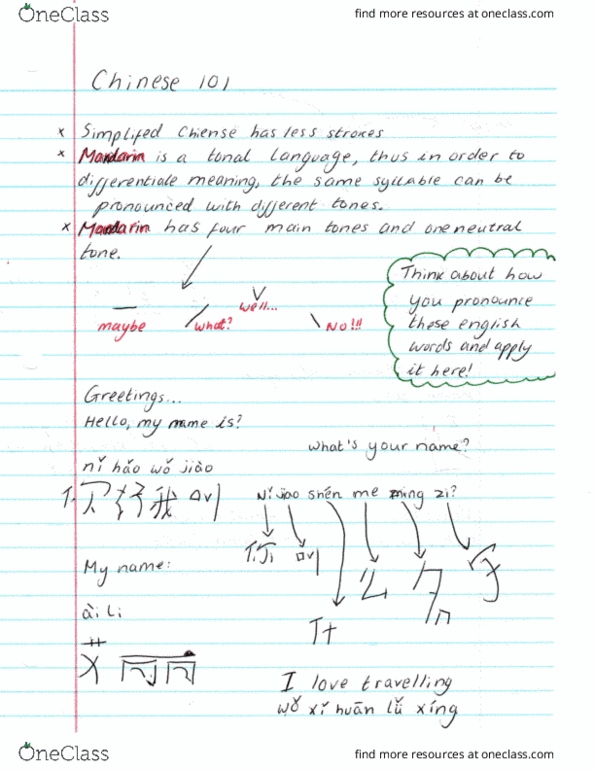 OneClass
find more resources at oneclass.com
Chinese 101
x Simplifed Chiense has less strokes
x Mandarin is a tonal language, thus in order to
differentiate meaning, the same syllable can be
pronounced with different tones.
x Mandarin has four main tones and one neutral
tone.
maybe
what?
well...
No!!!
Think about how
you pronounce
these english
words and apply
it here!
Greetings...
Hello, my name is?
nǐ hǎo wǒ jiào
你好我叫
what's your name?
Nǐ jiao shén me ming zi?
你 叫 什 么 名 字
My name:
ài Li
艾丽
I love travelling
wǒ xǐ huān lǚ xíng
OneClass
find more resources at oneclass.com